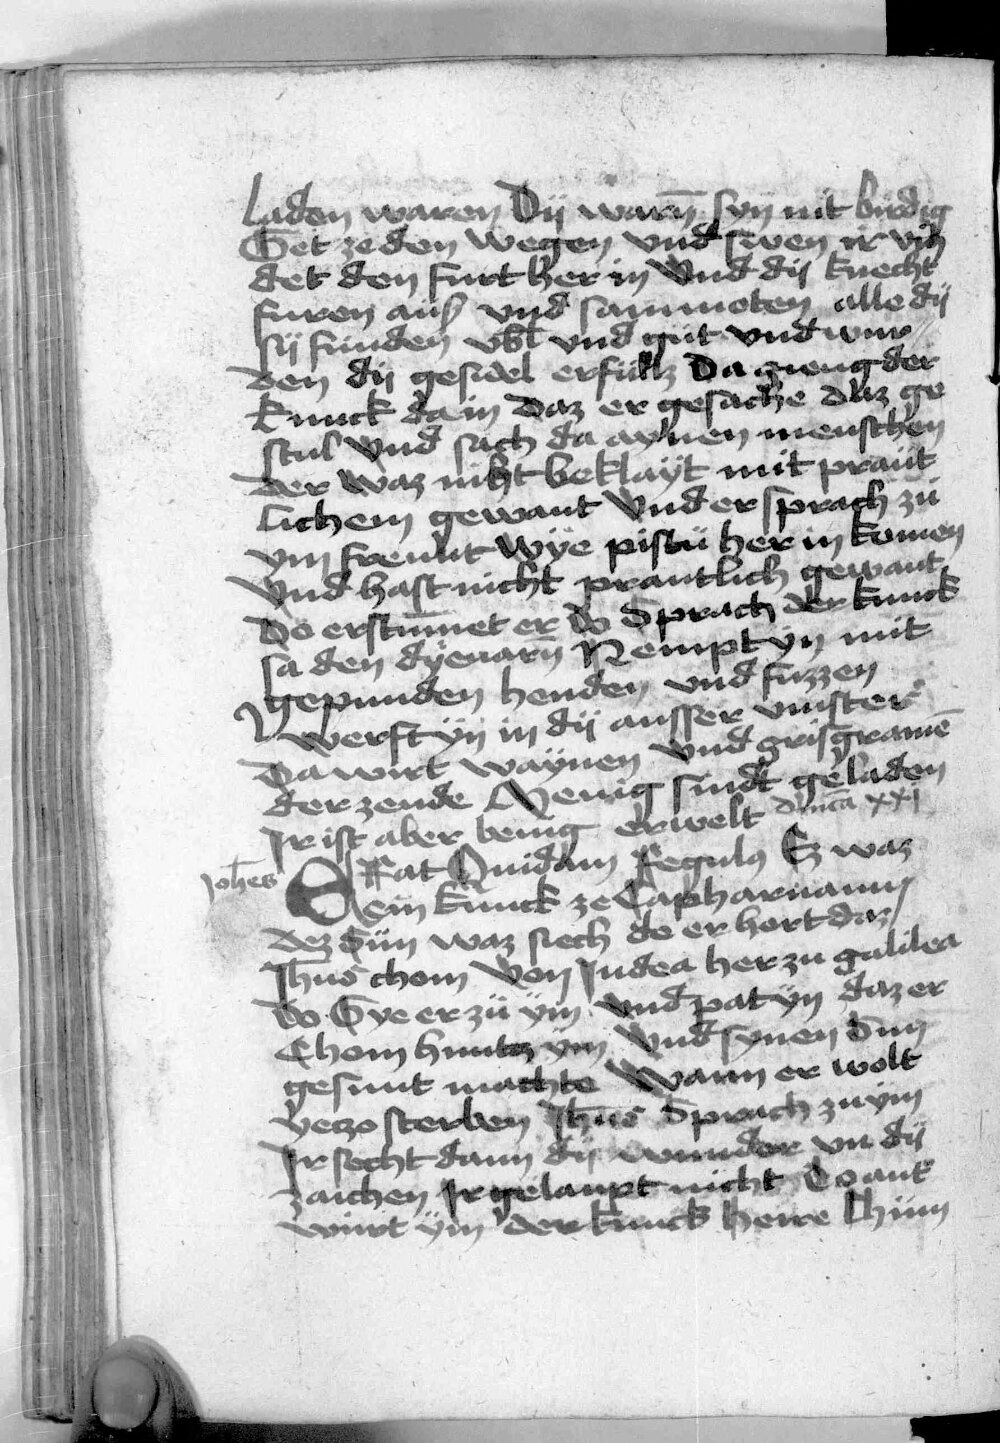 laden waren Dij warn̄ syn nit birdig
Get ze den wegen vnd swen ir vin
det den furt her in Vnd dij knecht
furen auß vnd sammoten alle dij
sij funden vbl vnd gut vnd wur
den dij gesidel erfullz Da gieng der
kunck da in Daz er gesache daz ge
stul Vnd sach da aynen menschen
der waz niht beklayt mit praut
lichem gewant Vnd er sprach zu
ym freunt Wye pistu her in komen
Vnd hast nicht prautlich gewant
Do erstum̄et er do Sprach der kunck
sa den dyenarn̄ Nempt yn mit
gepunden henden vnd fuzzen
Werft yn in dij ausser vinster
Da wirt waynen vnd grisgramē
der zende Wenig sindt geladen
Ir ist aber benig erwelt dn̄ica xxi
Joh̄es
ERat Quidam Regulus Ez waz
ein kunck ze Capharnaum
dez Sun waz siech do er hort daz
Ih̄us chom Von Judea her zu galilea
Do Gye er zu ym vnd pat yn daz er
Chom hintz ym Vnd synen Sun
gesunt machte Wann er wolt
yezo sterben Ih̄us Sprach zu ym
Ir secht dann dij wunder vn dij
zaichen Ir gelaupt nicht Do ant
wurt ym der kunck herre Chum